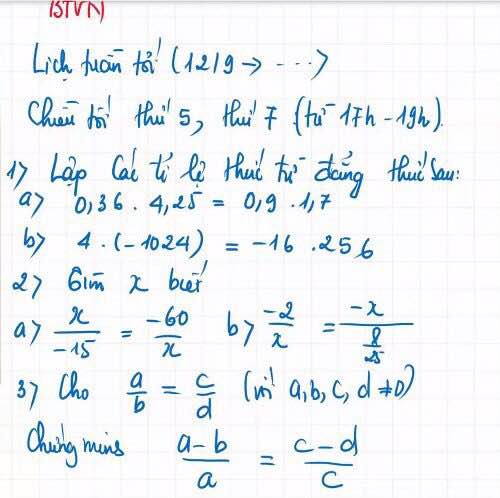 BTVN
Lịch tuần tới (12/9 → ...)
Chiều tối thứ 5, thứ 7 (từ 17h - 19h).
1) Lập các tỉ lệ thức từ đẳng thức sau:
a) 0,36 . 4,25 = 0,9 . 1,7
b) 4 . (-1024) = -16 . 256
2) Tìm x biết
a) x/-15 = -60/x b) -2/x = -x/(8/25)
3) Cho a/b = c/d (với a,b,c,d ≠ 0)
Chứng minh (a-b)/a = (c-d)/c